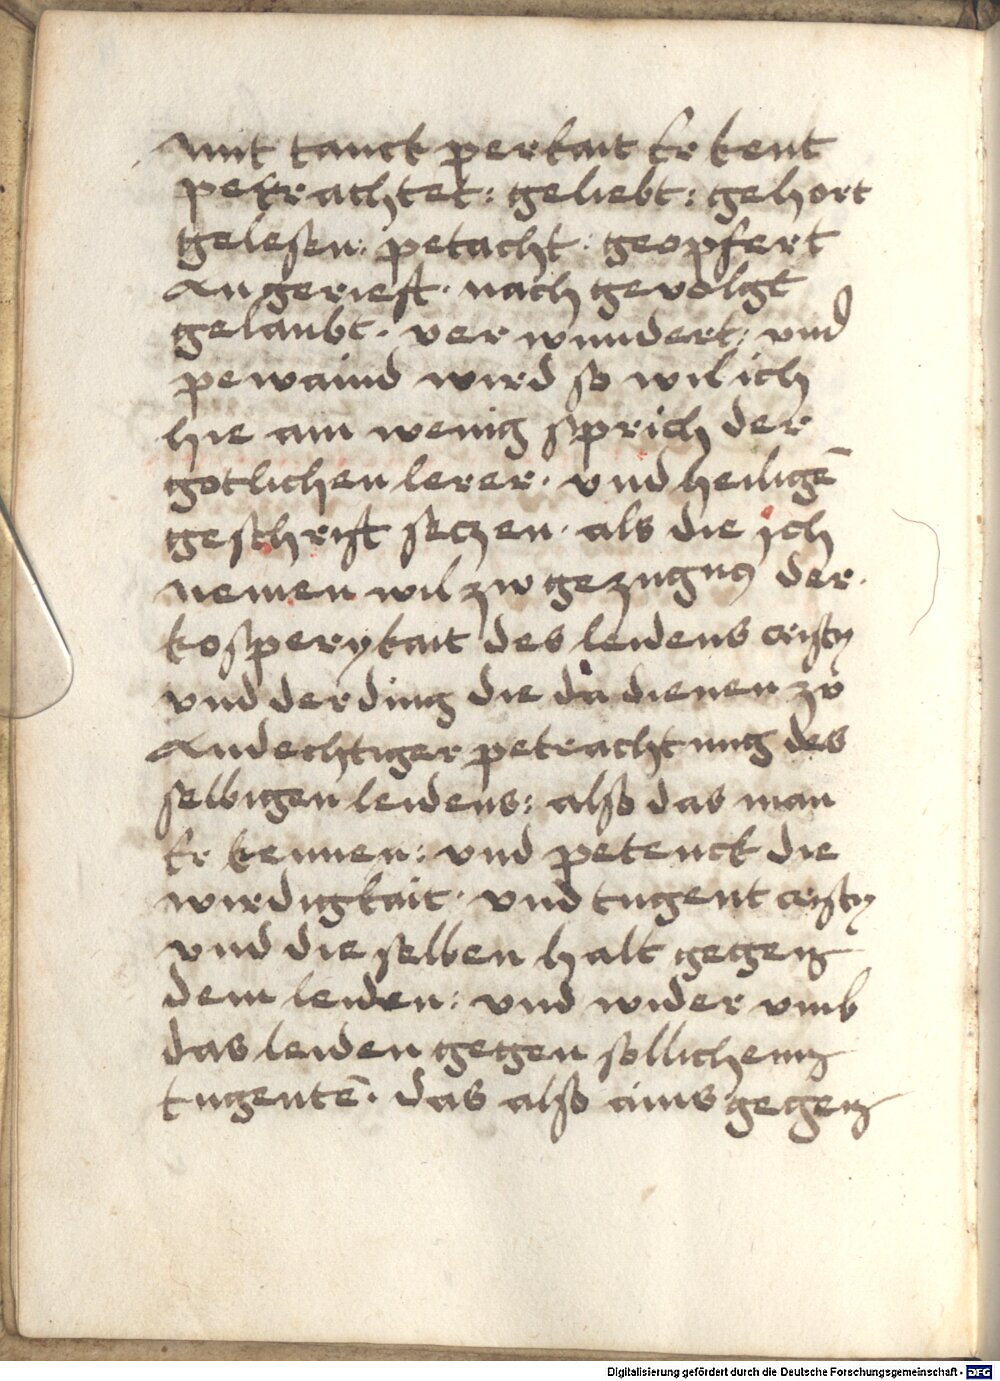 mit tanck perkait Er kent
petrachtet: geliebt: gehort
gelesen: petacht: geopfert
An gerieft. nach gevolgt
gelaubt. ver wundert: vnd
pewaind wird so wil ich
hie ain wenig sprich der
gotlichen lerer. vnd heiligē
geschrift seczen. als die jch
nemen wil zw gezugnus der.
kosperykait des leidens cristy
vnd der ding die da dienen zu
Andechtiger petrachtung des
selbigen leidens: also das man
Er kennen: vnd petenck die
wirdigkait. vnd tugent cristy
vnd die selben halt gegen
dem leiden: vnd wider vmb
das leiden gegen sollichenn
tugentē. das also ains gegen
Digitalisierung gefördert durch die Deutsche Forschungsgemeinschaft - DFG